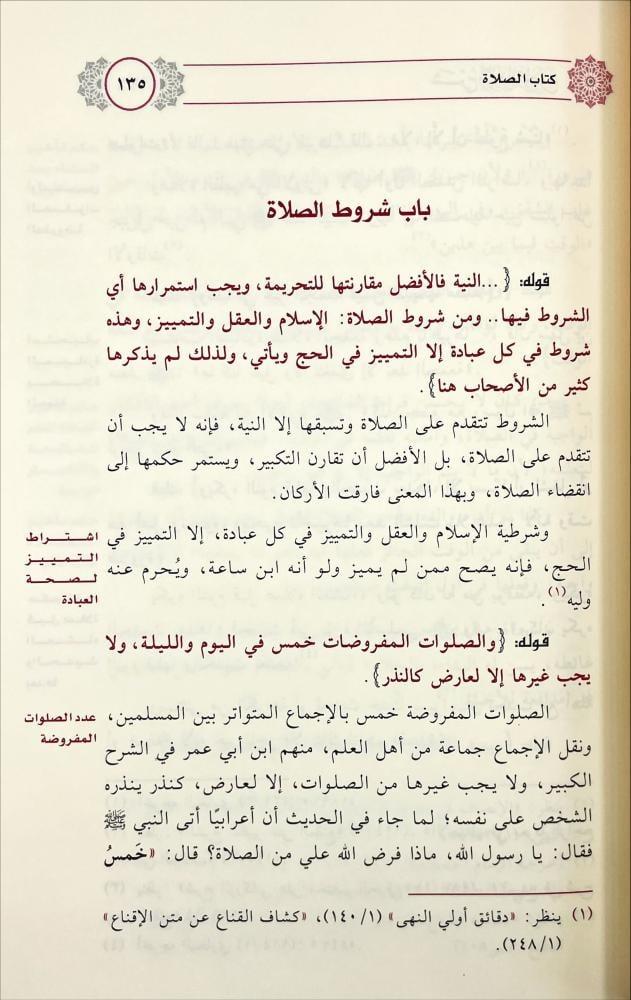 كتاب الصلاة
١٣٥
باب شروط الصلاة
قوله: {...النية فالأفضل مقارنتها للتحريمة، ويجب استمرارها أي
الشروط فيها.. ومن شروط الصلاة: الإسلام والعقل والتمييز، وهذه
شروط في كل عبادة إلا التمييز في الحج ويأتي، ولذلك لم يذكرها
كثير من الأصحاب هنا}.
الشروط تتقدم على الصلاة وتسبقها إلا النية، فإنه لا يجب أن
تتقدم على الصلاة، بل الأفضل أن تقارن التكبير، ويستمر حكمها إلى
انقضاء الصلاة، وبهذا المعنى فارقت الأركان.
اشتراط
التمييز
لصحة
العبادة
وشرطية الإسلام والعقل والتمييز في كل عبادة، إلا التمييز في
الحج، فإنه يصح ممن لم يميز ولو أنه ابن ساعة، ويُحرم عنه
وليه(١).
قوله: {والصلوات المفروضات خمس في اليوم والليلة، ولا
يجب غيرها إلا لعارض كالنذر}.
عدد الصلوات
المفروضة
الصلوات المفروضة خمس بالإجماع المتواتر بين المسلمين،
ونقل الإجماع جماعة من أهل العلم، منهم ابن أبي عمر في الشرح
الكبير، ولا يجب غيرها من الصلوات، إلا لعارض، كنذر ينذره
الشخص على نفسه؛ لما جاء في الحديث أن أعرابيًا أتى النبي ﷺ
فقال: يا رسول الله، ماذا فرض الله علي من الصلاة؟ قال: «خَمسُ
(١) ينظر: «دقائق أولي النهى» (١/ ١٤٠)، «كشاف القناع عن متن الإقناع»
(١/ ٢٤٨).